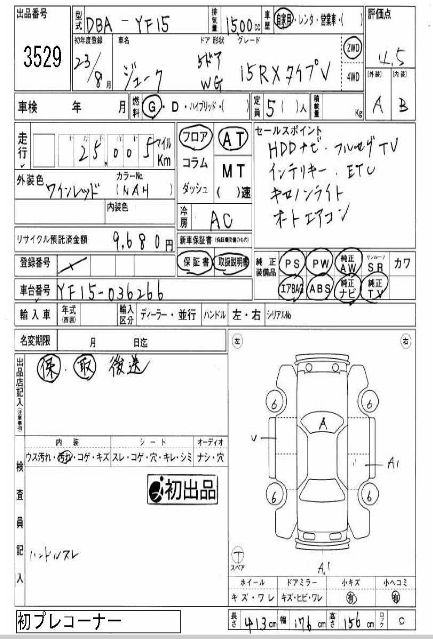 出品番号 3529
型式 DBA-YF15 排気量 1500cc 車歴 自家用・レンタ・営業車・( ) 評価点 4.5
初年度登録 23/8月 車名 ジューク ドア 形状 5ドア WG グレード 15RXタイプV 2WD 4WD (外装) A (内装) B
車検 年 月 燃料 G・D・ハイブリッド・( ) 定員 5( )人 積載量 Kg
走行 25,005 マイル Km
フロア AT
コラム MT
ダッシュ ( )速
セールスポイント
HDDナビ・フルセグTV
インテリキー・ETC
キセノンライト
オートエアコン
外装色 ワインレッド カラーNo. (NAH)
内装色
冷房 AC
リサイクル預託済金額 9,680円
新車保証書
保証書 取扱説明書
登録番号
純正装備品 PS PW 純正AW サンルーフ SR カワ
エアBAG ABS 純正ナビ 純正TV
車台番号 YF15-036266
輸入車 年式(西暦) 輸入区分 ディーラー・並行 ハンドル 左・右 シリアルNo
名変期限 月 日迄
出品店記入(注意事項) 保 取 後送
内装 シート オーディオ
ウス汚れ・汚れ・コゲ・キズ スレ・コゲ・穴・キレ・シミ ナシ・穴
初出品
検査員記入
ハンドルスレ
左 右
6 6
A
U A1
6 6
スペア
A1
ホイール ドアミラー 小キズ 小ヘコミ
キズ・ワレ キズ・ヒビ・ワレ 有 有
初プレコーナー
長さ 413cm 幅 176cm 高さ 156cm ロック C